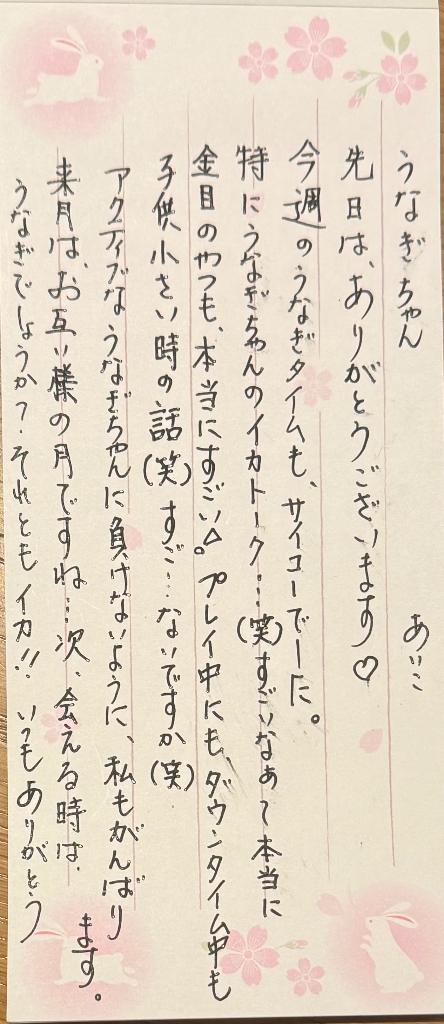 うなぎちゃん
あいこ
先日は、ありがとうございます♡
今週のうなぎタイムも、サイコーでした。
特にうなぎちゃんのイカトーク…(笑)すごいなぁて本当に
金目のやつも、本当にすごい△。プレイ中にも、ダウンタイム中も
子供小さい時の話(笑)すご…ないですか(笑)
アクティブなうなぎちゃんに負けないように、私もがんばり
ます。
来月は、お互い様の月ですね…次、会える時は、
うなぎでしょうか?それともイカ!!いつもありがとう